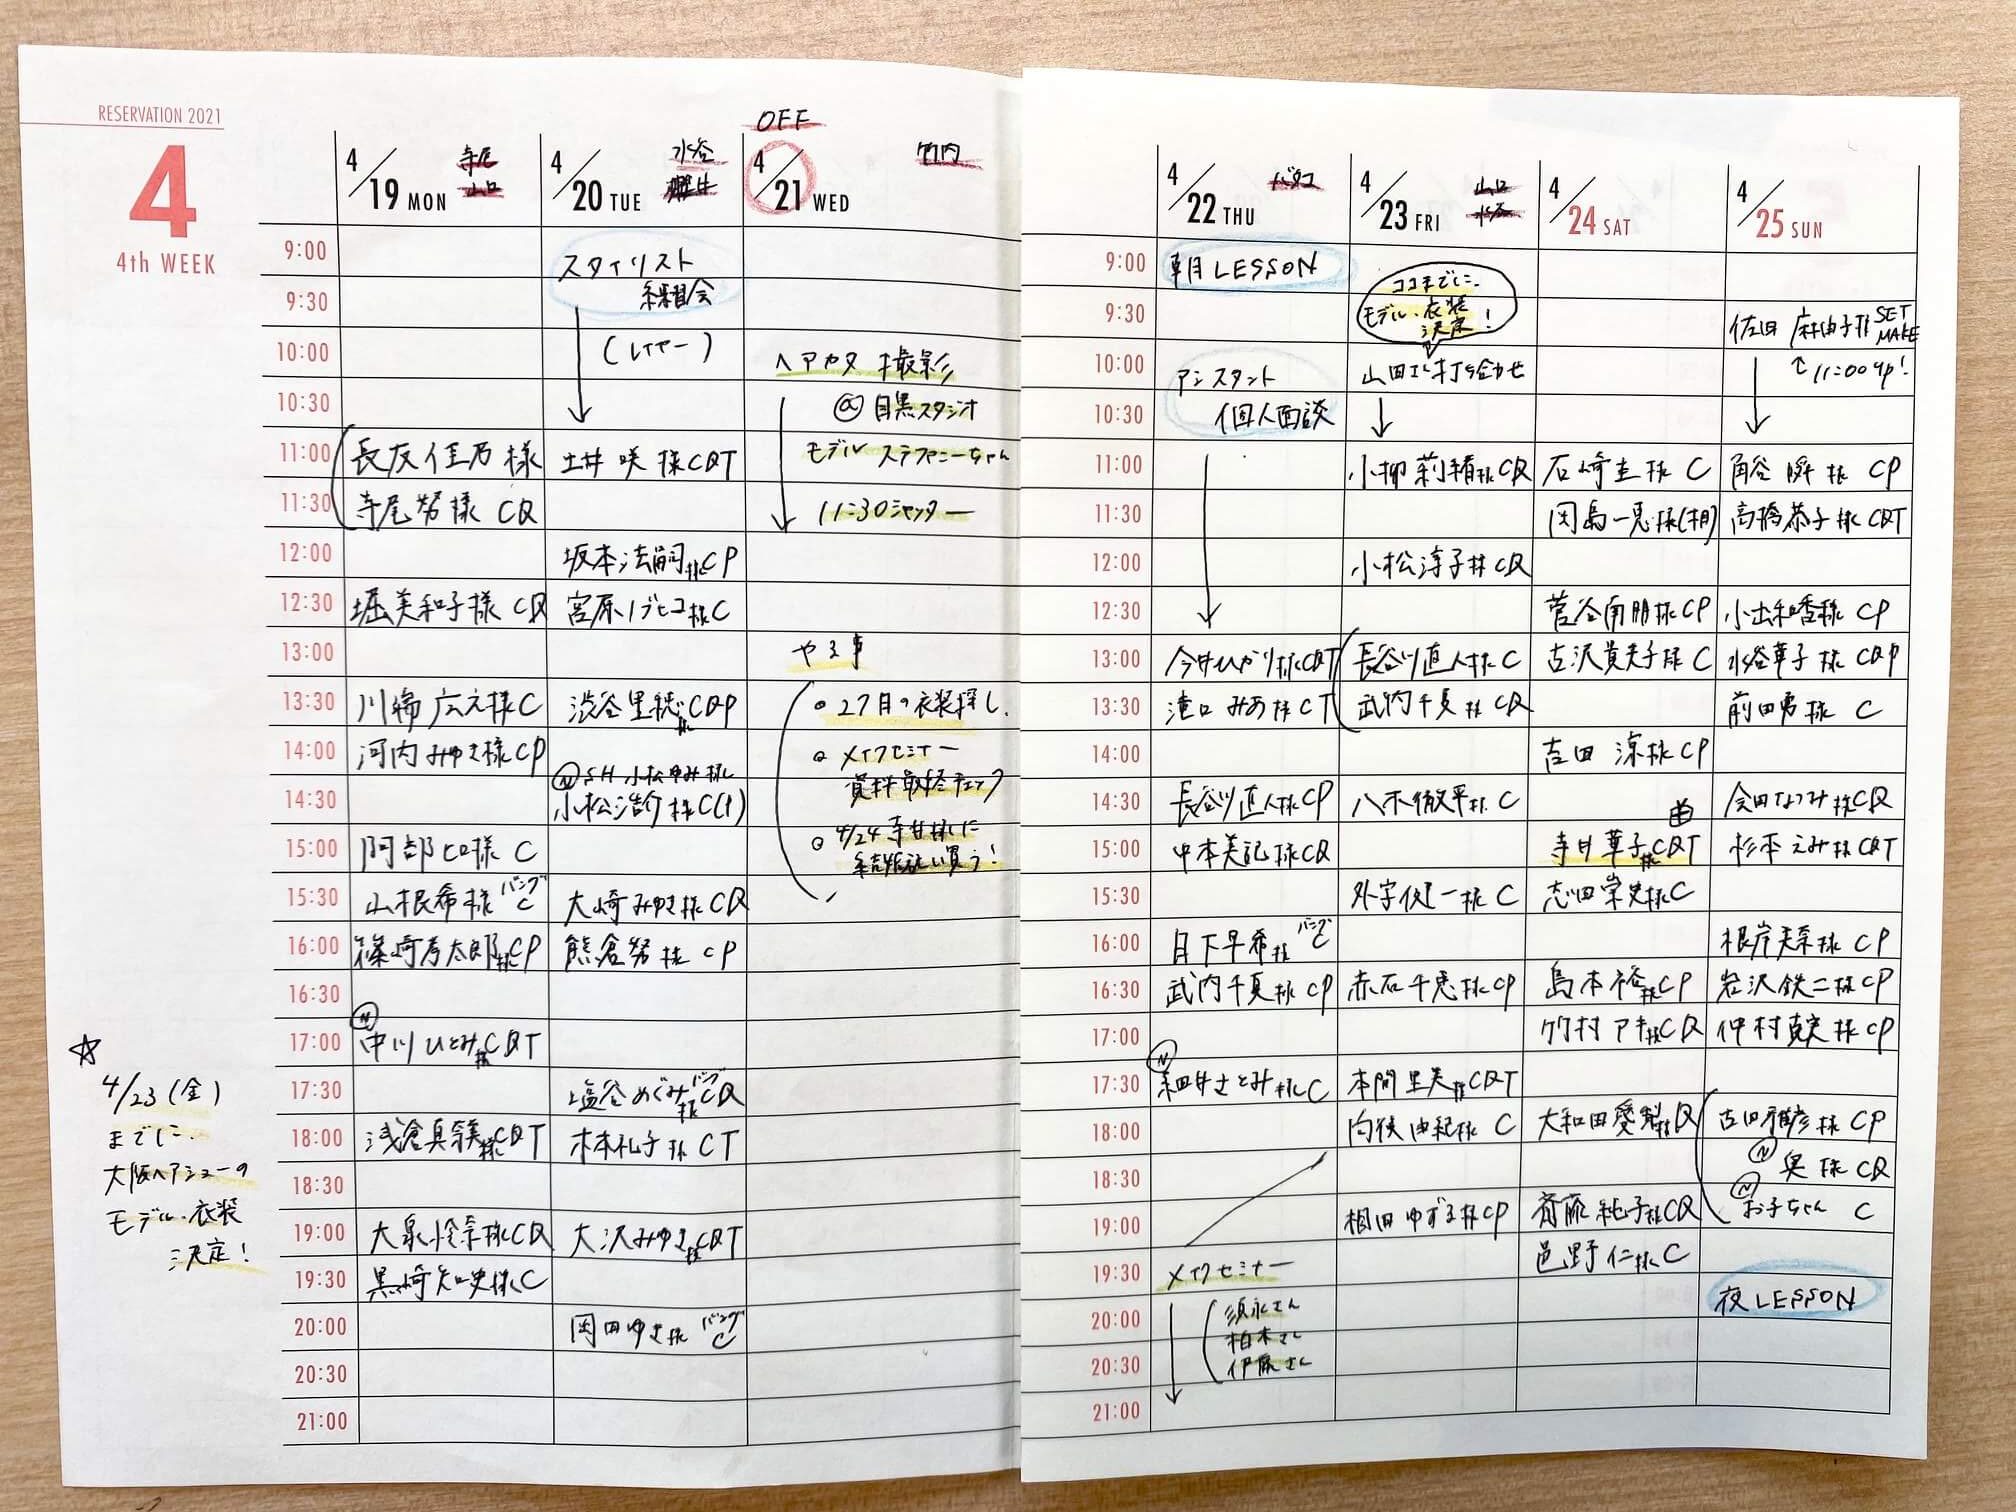 RESERVATION 2021
4
4th WEEK
☆
4/23(金)
までに
大阪ヘアショーの
モデル、衣装
決定!
4/19 MON
寺尾
山口
9:00
9:30
10:00
10:30
11:00 長友佳乃様
11:30 寺尾努様 CQ
12:00
12:30 堀美和子様 CQ
13:00
13:30 川端広元様 C
14:00 河内みゆき様 CP
14:30
15:00 阿部ヒロ様 C
15:30 山根希様 バング C
16:00 篠崎孝太郎様 CP
16:30
17:00 Ⓝ 中川ひとみ様 CQT
17:30
18:00 浅倉真 様 CQT
18:30
19:00 大泉怜奈様 CQ
19:30 黒崎知史様 C
20:00
20:30
21:00
4/20 TUE
水谷
スタイリスト
練習会
(レイヤー)
土井 咲 様 CQT
坂本 様 CP
宮原 様 C
渋谷里穂様 CQP
Ⓝ SH 小松ゆみ様
小松浩介様 C(1)
大崎みゆき様 CQ
熊倉努様 CP
塩谷めぐみ様 バング CQ
木本礼子様 CT
大沢みゆき様 CQT
岡田ゆき様 バング C
OFF
4/21 WED
竹内
ヘアカタ 撮影
@目黒スタジオ
モデル ステファニーちゃん
11:30シャッター
やる事
27日の衣装探し
メイクセミナー
資料最終チェック
4/24 寺井様に
結婚祝い買う!
4/22 THU
9:00 朝LESSON
9:30
10:00 アシスタント
10:30 個人面談
11:00
11:30
12:00
12:30
13:00 今井ひかり様 CQT
13:30 滝口みあ様 CT
14:00
14:30 長谷川直人様 CP
15:00 中本美記様 CQ
15:30
16:00 日下早希様 バング C
16:30 武内千夏様 CP
17:00
17:30 Ⓝ 細井さとみ様 C
18:00
18:30
19:00
19:30 メイクセミナー
20:00 須永さん
柏木さん
20:30 伊藤さん
21:00
4/23 FRI
山口
水谷
ココまでに、
モデル、衣装
決定!
山田エンド打ち合わせ
小柳莉 様 CQ
小松淳子様 CQ
長谷川直人様 C
武内千夏様 CQ
八木徹平様 C
外字健一様 C
赤石千恵様 CP
本間里美様 CQT
向後由紀様 C
相田ゆずる様 CP
4/24 SAT
石崎圭様 C
因島一恵様
菅谷南朋様 CP
古沢貴美子様 C
吉田涼様 CP
寺井華子様 CQT
志田崇史様 C
島本裕様 CP
竹村アキ様 CQ
大和田愛梨様 Q
斉藤純子様 CQ
邑野仁様 C
4/25 SUN
佐田麻由子様 SET
MAKE
↑11:00up!
角谷瞬様 CP
高橋恭子様 CQT
小出和香様 CP
水谷華子様 CQP
前田勇様 C
会田なつみ様 CQ
杉本えみ様 CQT
根岸美奈様 CP
岩沢鉄二様 CP
仲村 様 CP
古田雅彦様 CP
Ⓝ 奥様 CQ
Ⓝ お子ちゃん C
夜LESSON